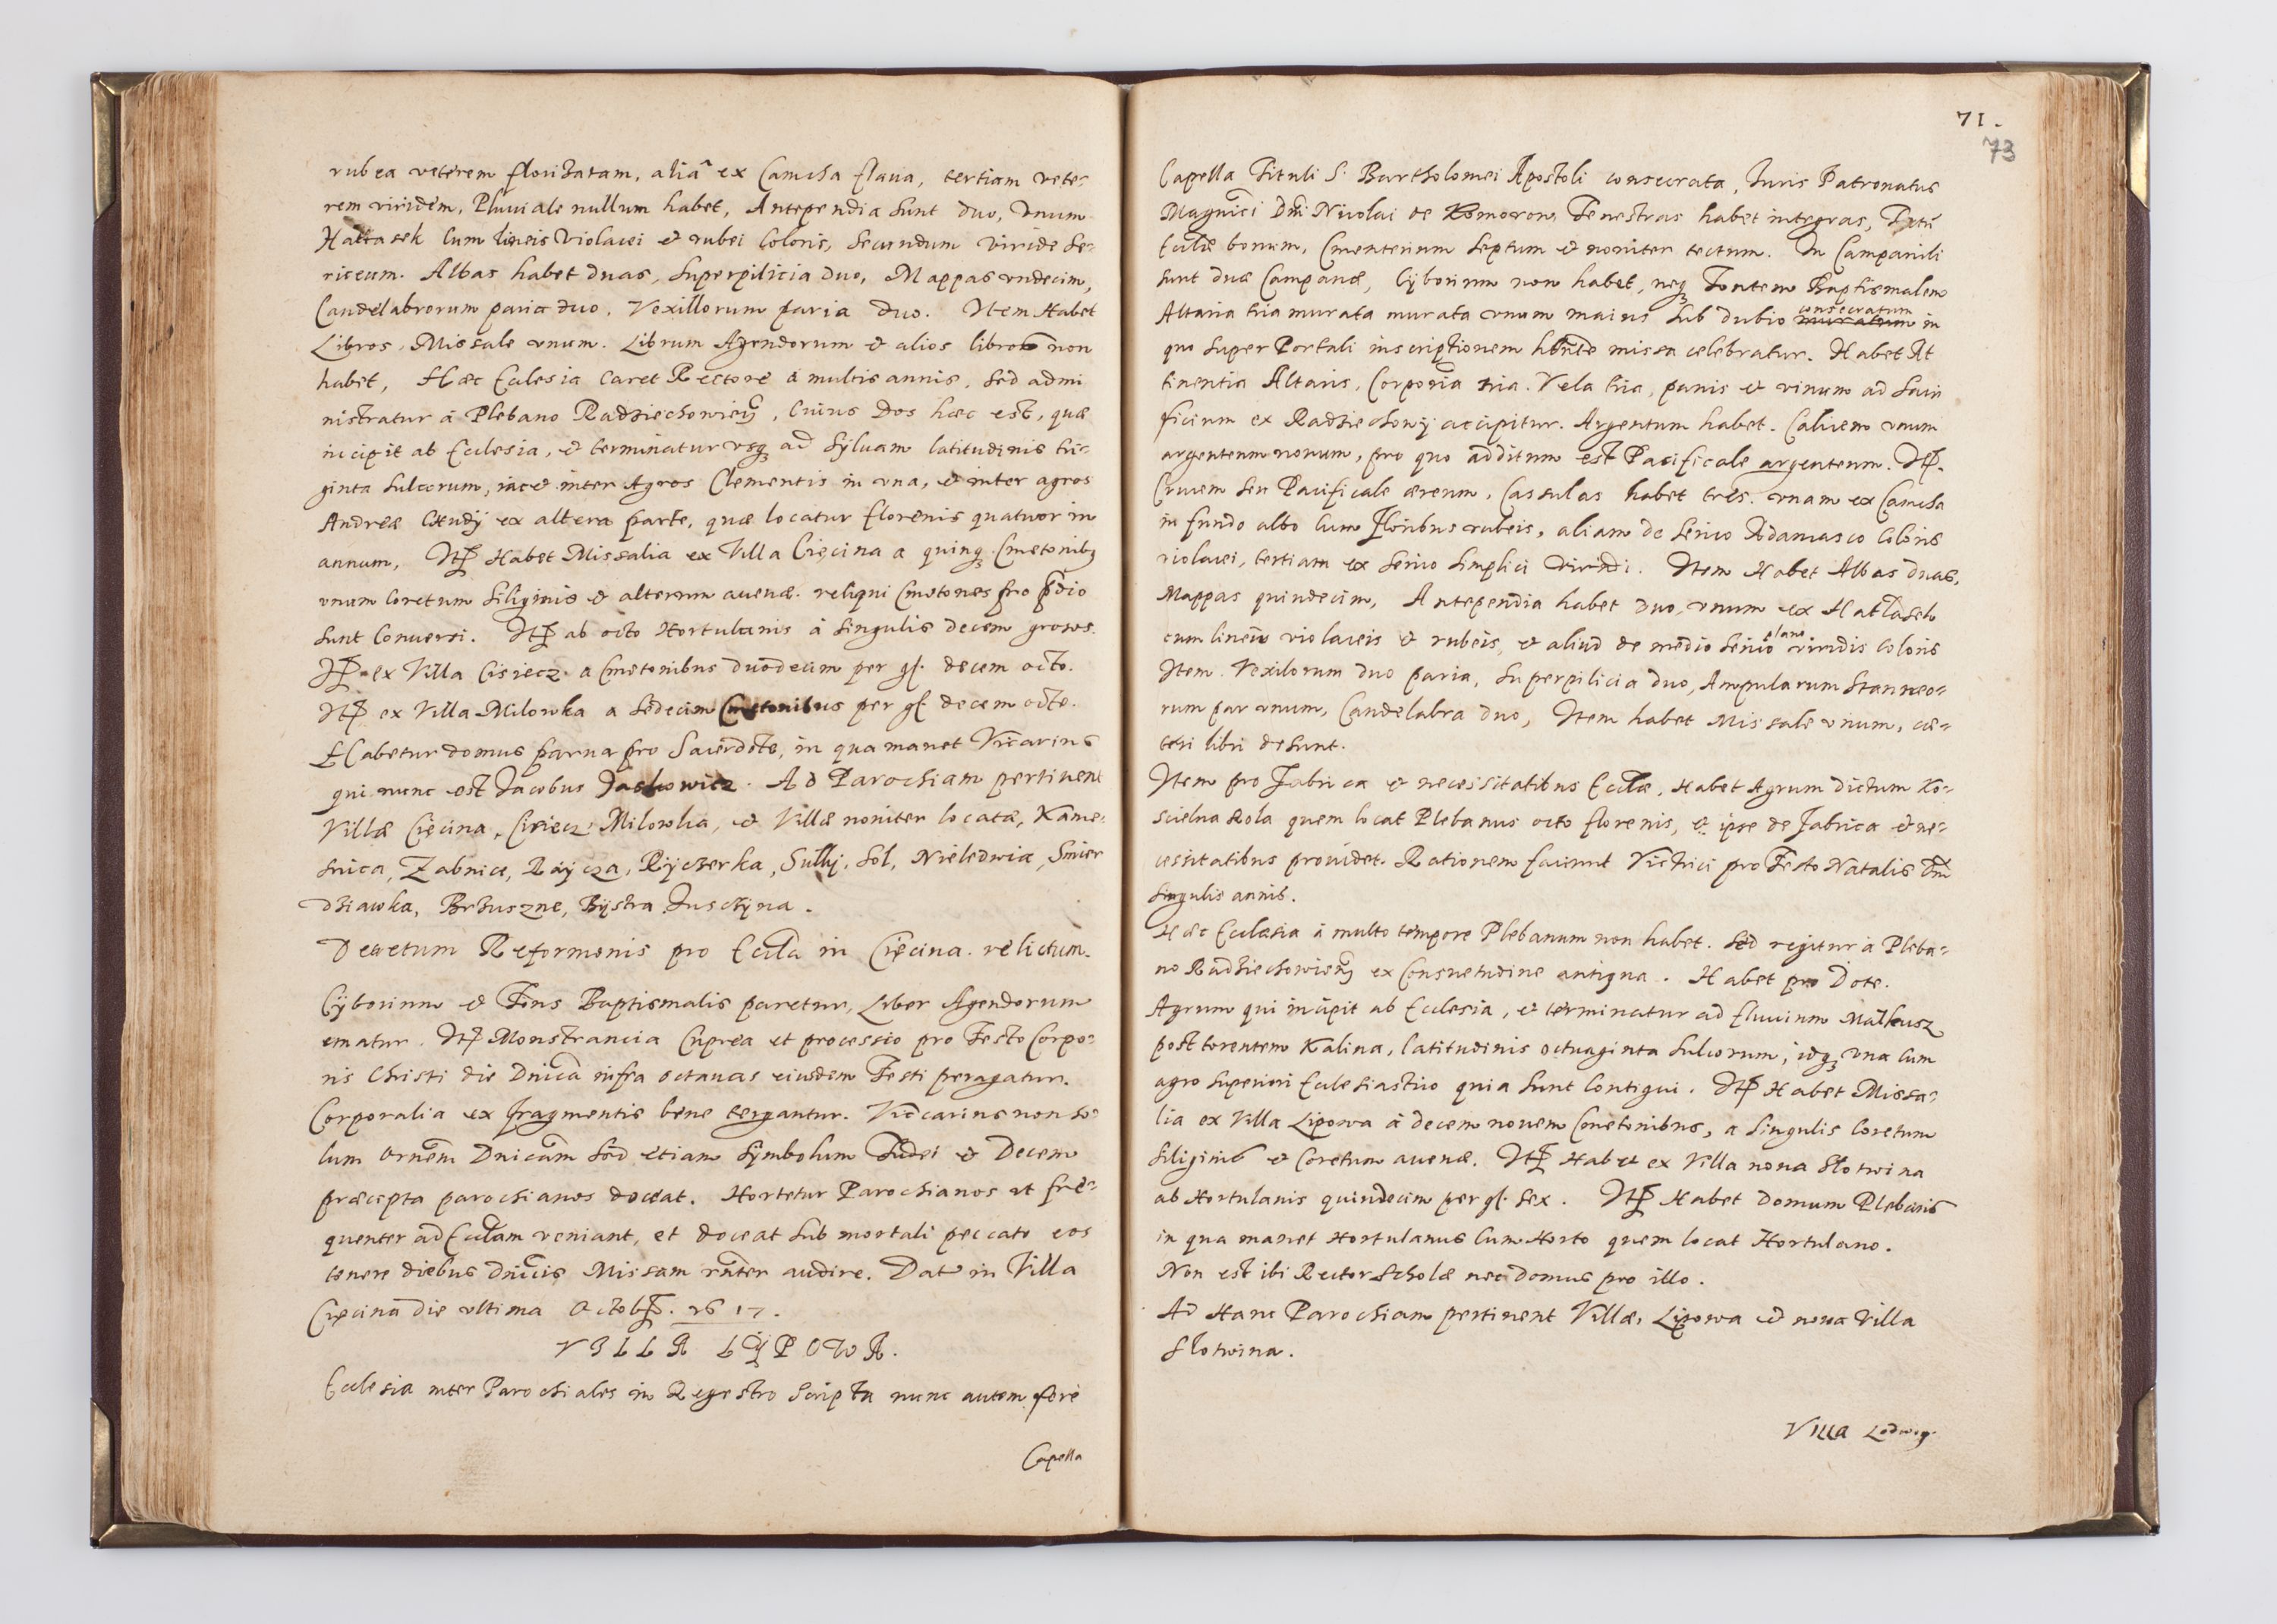 rubea veterem floridatam, aliā ex Camcha flaua, tertiam vete-
rem viridem, Pluuiale nullum habet, Antependia sunt duo, Vnum
Hattasek cum lineis Violacei et rubei Coloris, Secundum viride Se-
riceum. Albas habet duas, Superpilicia duo, Mappas vndecim,
Candelabrorum paria duo. Vexillorum paria duo. Item Habet
Libros, Missale vnum. Librum Agendorum et alios libros non
habet, Haec Ecclesia caret Rectore à multis annis, sed admi
nistratur à Plebano Radziechowieñ, Cuius Dos haec est, quae
incipit ab Ecclesia, et terminatur vsq; ad Syluam latitudinis tri-
ginta Sulcorum, iacet inter Agros Clementis in vna, et inter agros
Andreae ex altera parte, quae locatur florenis quatuor in
annum, Itē Habet Missalia ex Villa Ciecina a quinq; Cmetonib;
vnum Coretum Siliginis et alterum auenae. reliqui Cmetones pro p̄dio
sunt Conuersi. Itē ab octo Hortulanis à singulis decem grosos.
Itē ex Villa Cisiecz a Cmetonibus duodecim per gſ. decem octo.
Itē ex Villa Milowka a sedecim Cmetonibus per gſ. decem octo.
Habetur domus parua pro Sacerdote, in qua manet Vicarius
qui nunc est Jacobus Jaskowicz. Ad Parochiam pertinent
Villae Ciecina, Cisiecz, Milowka, et Villae nouiter locatae, Kame-
snica, Zabnice, Raycza, Rÿczerka, Sol, Nieledwia, Smier
dziawka, Brzuszne, Bÿstra Juschÿna.
Decretum Reformonis pro Eccla in Ciecina relictum.
Cÿborium et Fons Baptismalis paretur, Liber Agendorum
ematur. Itē Monstrancia Cuprea et processio pro Festo Corpo-
ris Christi die Dnica infra octauas eiusdem Festi peragatur.
Corporalia ex fragmentis bene tergantur. Viccarius non so-
lum Orñem Dnicam sed etiam Sÿmbolum Fidei et Decem
praecepta parochianos doceat. Hortetur Parochianos ut fre-
quenter ad Ecclam veniant, et doceat sub mortali peccato eos
tenere diebus Dnicis Missam audire. Dat in Villa
Ciecina die vltima Octob. 1617.
VILLA LŸPOWA.
Ecclesia inter Parochiales in Regestro Scripta nunc autem fere
Capella
71.
73
Capella Tituli S. Bartholomei Apostoli consecrata, Juris Patronatus
Magnici Dni Nicolai de Komorow, Fenestras habet integras,
bonum, Cmenterium septum et nouiter tectum. In Campanili
sunt duae Campanae, Cÿborium non habet, neq; Fontem Baptismalem
Altaria tria murata murata vnum maius sub dubio consecratum in
quo super Portali inscriptionem missa celebratur. Habet At
tinentia Altaris, Corporia tria. Vela tria, panis et vinum ad Sacri
ficium ex Radziechowÿ accipitur. Argentum habet. Calicem vnum
argenteum nouum, pro quo additum est Pacificale argenteum. Itē.
Crucem seu Pacificale aereum, Cassulas habet tres. vnam ex Camcha
in fundo albo Cum Floribus rubeis, aliam de Serico Adamasco Coloris
violacei, tertiam ex Serico Simplici viridi. Item Habet Albas duas,
Mappas quindecim, Antependia habet duo, vnum ex Hatlaseh
cum lineis violaceis et rubeis, et aliud de medio Serico plano viridis coloris
Item Vexilorum duo paria, Superpilicia duo, Ampularum Stanneo-
rum par vnum, Candelabra duo, Item habet Missale vnum, cae-
teri libri desunt.
Item pro Fabrica et necessitatibus Ecclae, Habet Agrum dictum Ko-
scielna Rola quem locat Plebanus octo florenis, et ipse de Fabrica et ne-
cessitatibus prouidet. Rationem faciunt Victrici pro Festo Natalis Dni
singulis annis.
Haec Ecclesia à multo tempore Plebanum non habet. Sed regitur à Pleba-
no Radziechowieñ ex Consuetudine antiqua. Habet pro Dote.
Agrum qui incipit ab Ecclesia, et terminatur ad fluuium Malkusz
post torentem Kalina, latitudinis octuaginta Sulcorum, idq; vna cum
agro superiori Ecclesiastico quia sunt Contigui. Itē Habet Missa-
lia ex Villa Lipowa à decem nouem Cmetonibus, a singulis Coretum
Siliginis et Coretum auenae. Itē Habet ex Villa noua Slotwina
ab Hortulanis quindecim per gſ. sex. Itē Habet Domum Plebanis
in qua manet Hortulanus Cum Horto quem locat Hortulano.
Non est ibi Rector Scholae nec domus pro illo.
Ad Hanc Parochiam pertinent Villae, Lipowa et noua Villa
Slotwina.
Villa Lodwig.